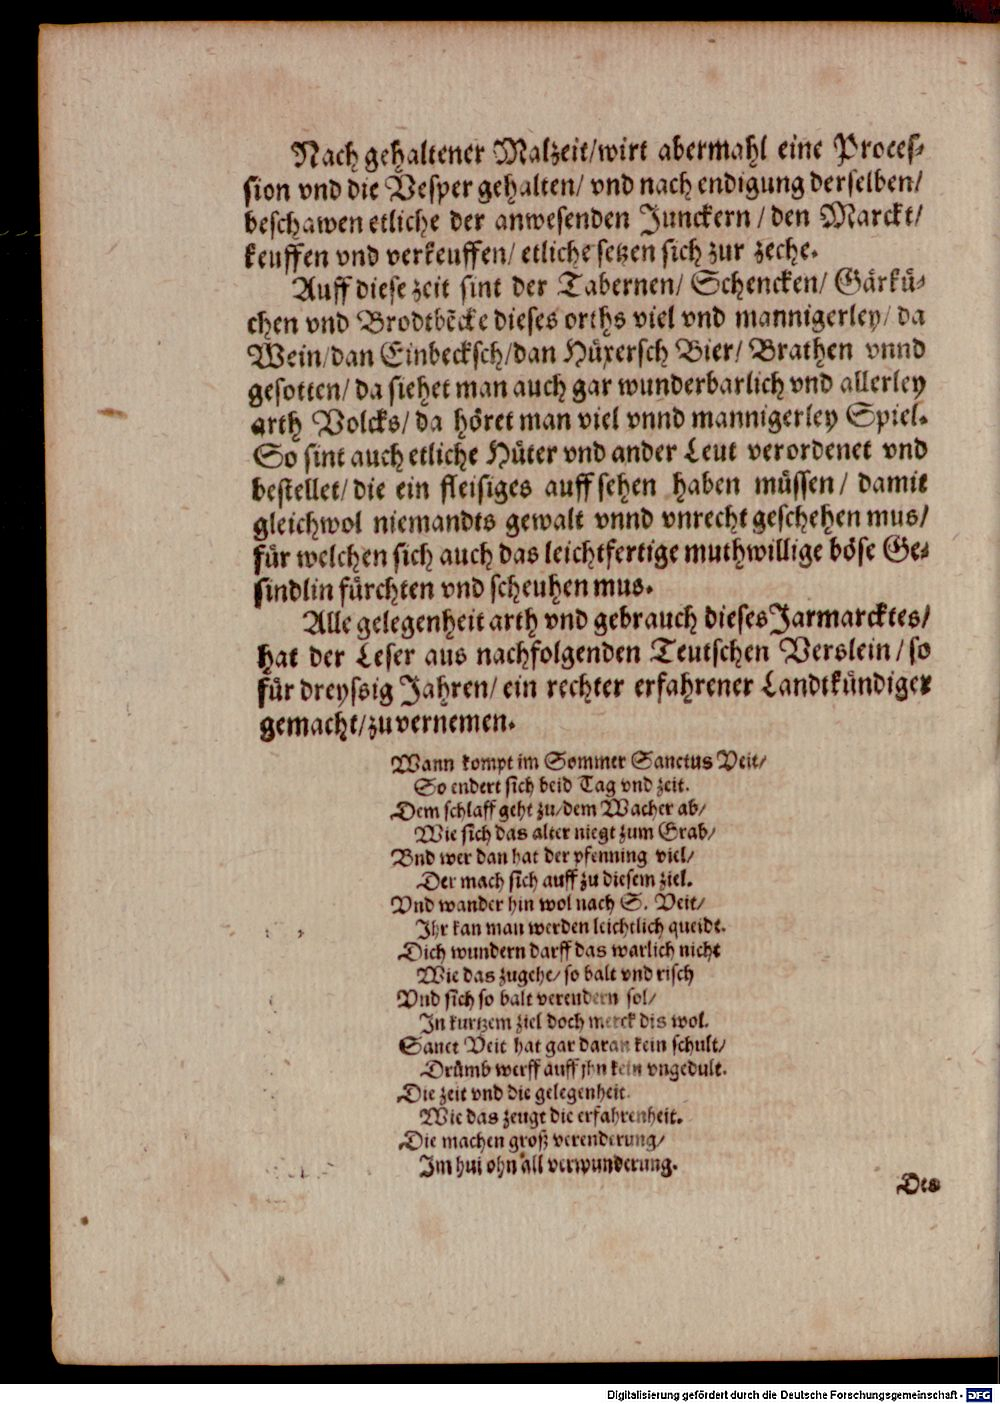 Nach gehaltener Malzeit/wirt abermahl eine Proces-
sion vnd die Vesper gehalten/ vnd nach endigung derselben/
beschawen etliche der anwesenden Junckern / den Marckt/
keuffen vnd verkeuffen/ etliche setzen sich zur zeche.
Auff diese zeit sint der Tabernen/ Schencken/ Gärkü-
chen vnd Brodtbēcke dieses orths viel vnd mannigerley/ da
Wein/dan Einbecksch/dan Hüxersch Bier/ Brathen vnnd
gesotten/ da siehet man auch gar wunderbarlich vnd allerley
arth Volcks/ da höret man viel vnnd mannigerley Spiel.
So sint auch etliche Hüter vnd ander Leut verordenet vnd
bestellet/ die ein fleisiges auff sehen haben müssen / damit
gleichwol niemandts gewalt vnnd vnrecht geschehen mus/
für welchen sich auch das leichtfertige muthwillige böse Ge-
sindlin fürchten vnd scheuhen mus.
Alle gelegenheit arth vnd gebrauch dieses Jarmarcktes/
hat der Leser aus nachfolgenden Teutschen Verslein / so
für dreyssig Jahren/ ein rechter erfahrener Landtkündiger
gemacht/zu vernemen.
Wann kompt im Sommer Sanctus Veit/
So endert sich beid Tag vnd zeit.
Dem schlaff geht zu/dem Wacher ab/
Wie sich das alter niegt zum Grab/
Vnd wer dan hat der pfenning viel/
Der mach sich auff zu diesem ziel.
Vnd wander hin wol nach S. Veit/
Ihr kan man werden leichtlich queidt.
Dich wundern darff das warlich nicht
Wie das zugehe/ so balt vnd risch
Vnd sich so balt verendern sol/
In kurtzem ziel doch merck dis wol.
Sanct Veit hat gar daran kein schult/
Drümb werff auff jhn kein vngedult.
Die zeit vnd die gelegenheit.
Wie das zeugt die erfahrenheit.
Die machen groß verenderung/
Im hui ohn all verwunderung.
Des
Digitalisierung gefördert durch die Deutsche Forschungsgemeinschaft - DFG